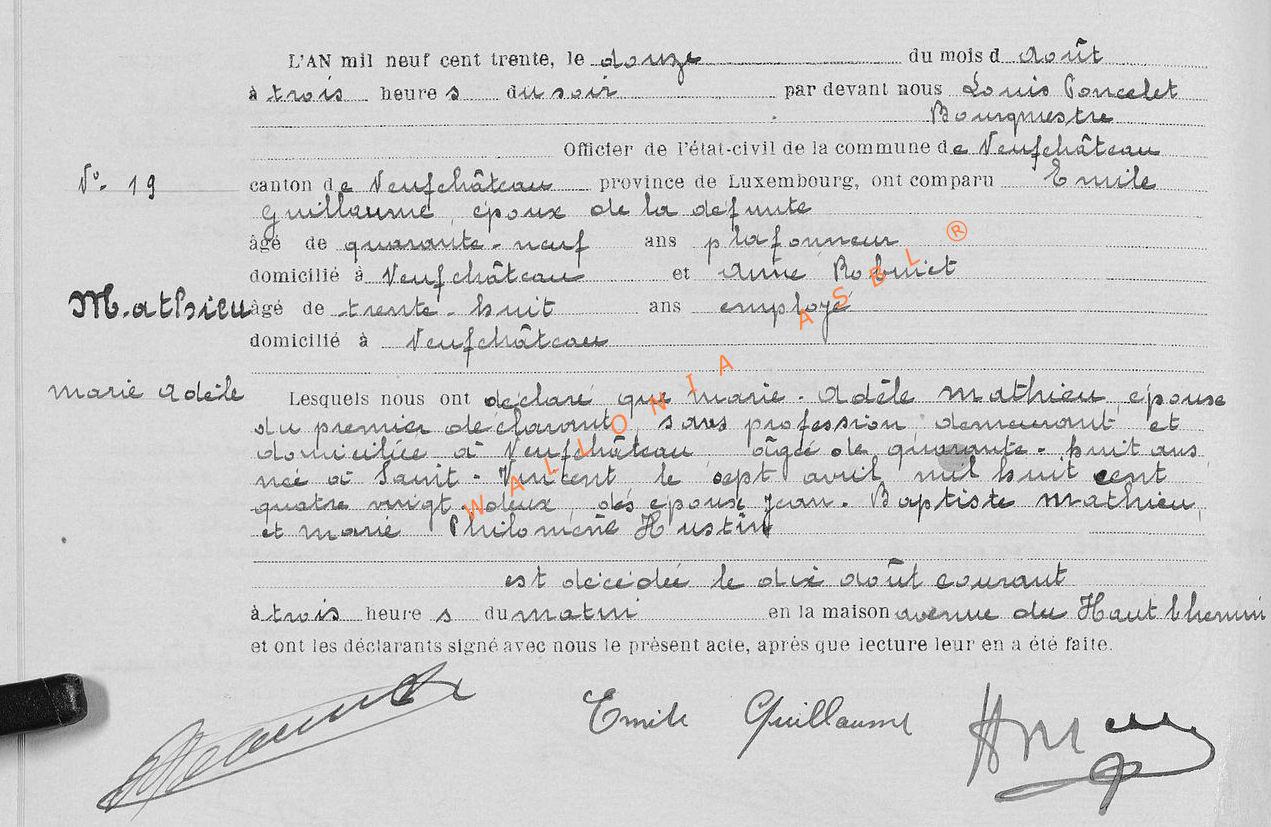 L'AN mil neuf cent trente, le douze du mois d août
à trois heure s du soir par devant nous Louis Poncelet
Bourgmestre
Officier de l'état-civil de la commune de Neufchâteau
N° 19 canton de Neufchâteau province de Luxembourg, ont comparu Emile
Guillaume, époux de la défunte
âgé de quarante-neuf ans plafonneur
domicilié à Neufchâteau et Anne
Mathieu âgé de trente-huit ans employé
domicilié à Neufchâteau
marie adèle Lesquels nous ont déclaré que marie-Adèle mathieu, épouse
du premier déclarant, sans profession, demeurant et
domiciliée à Neufchâteau âgée de quarante-huit ans
née à Saint-Vincent le sept avril mil huit cent
quatre vingt-deux, des époux Jean-Baptiste mathieu,
et marie Philomène Hustin
est décédée le dix août courant
à trois heure s du matin en la maison avenue du Haut Chemin
et ont les déclarants signé avec nous le présent acte, après que lecture leur en a été faite.
Emile Guillaume
WALLONIA ASBL ®